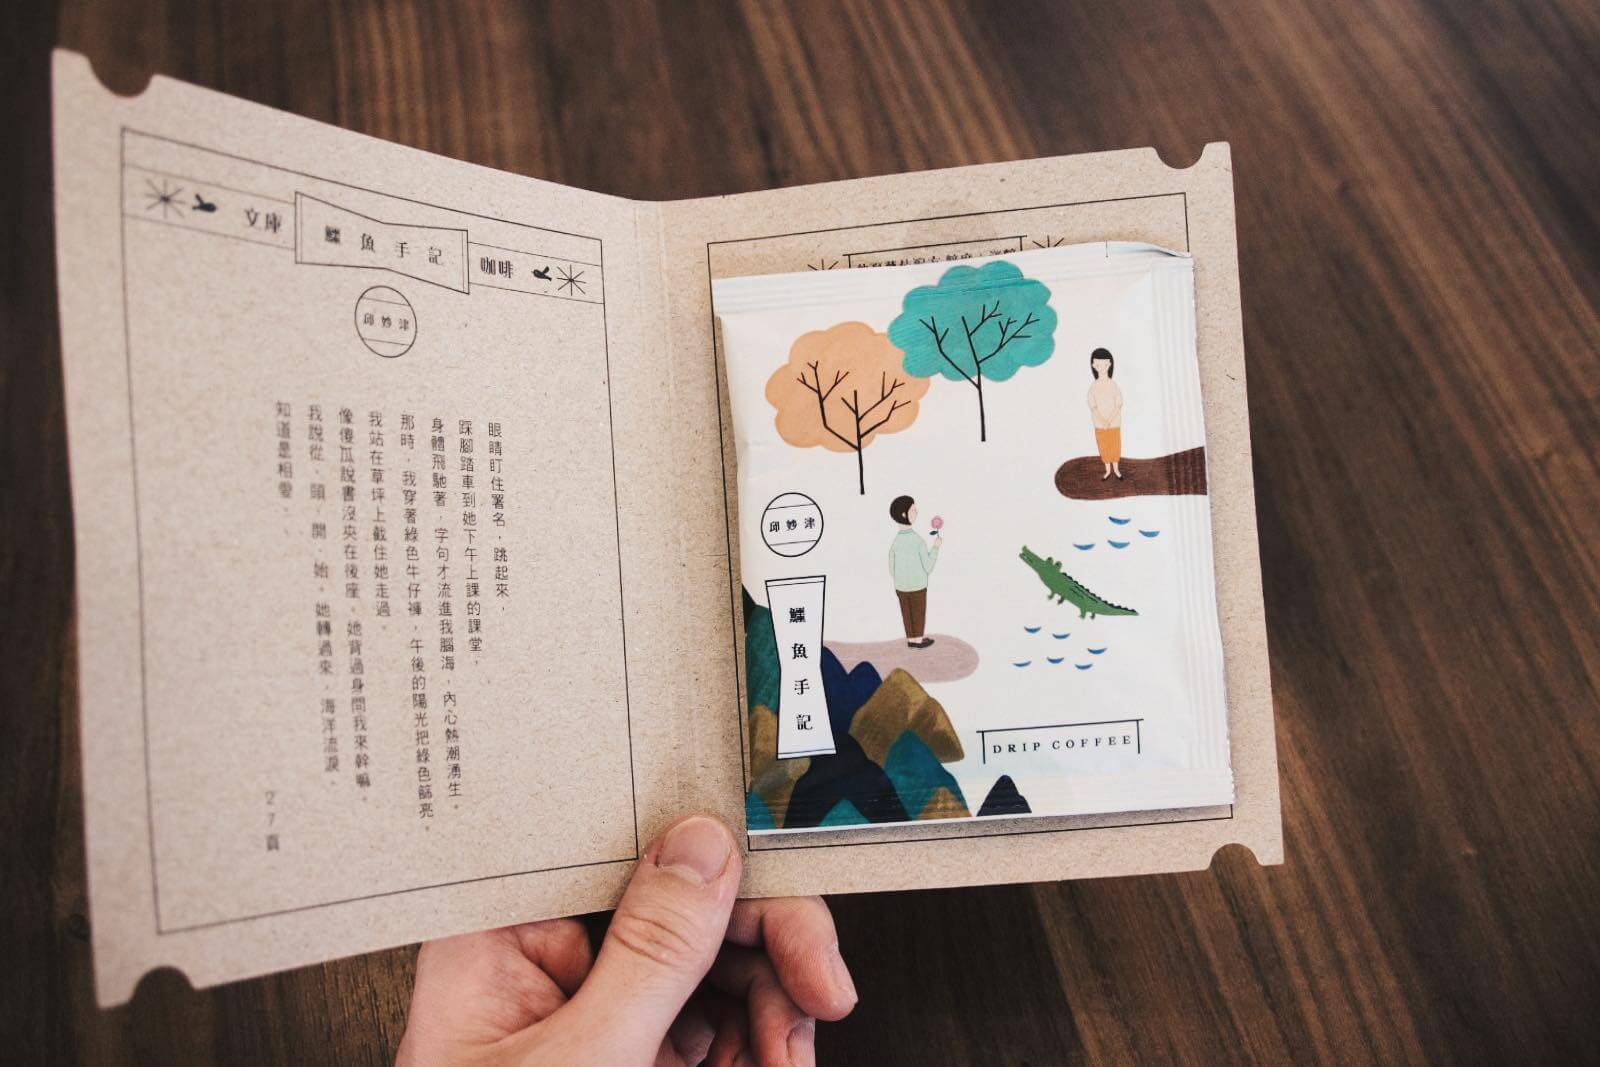 文庫
鱷魚手記
咖啡
邱妙津
眼睛盯住署名，跳起來，
踩腳踏車到她下午上課的課堂，
身體飛馳著，字句才流進我腦海，內心熱潮湧生。
那時，我穿著綠色牛仔褲，午後的陽光把綠色篩亮，
我站在草坪上截住她走過。
像傻瓜說書沒夾在後座，她背過身問我來幹嘛。
我說從、頭、開、始。她轉過來，海洋流淚，
知道是相愛、、
27頁
邱妙津
鱷魚手記
DRIP COFFEE